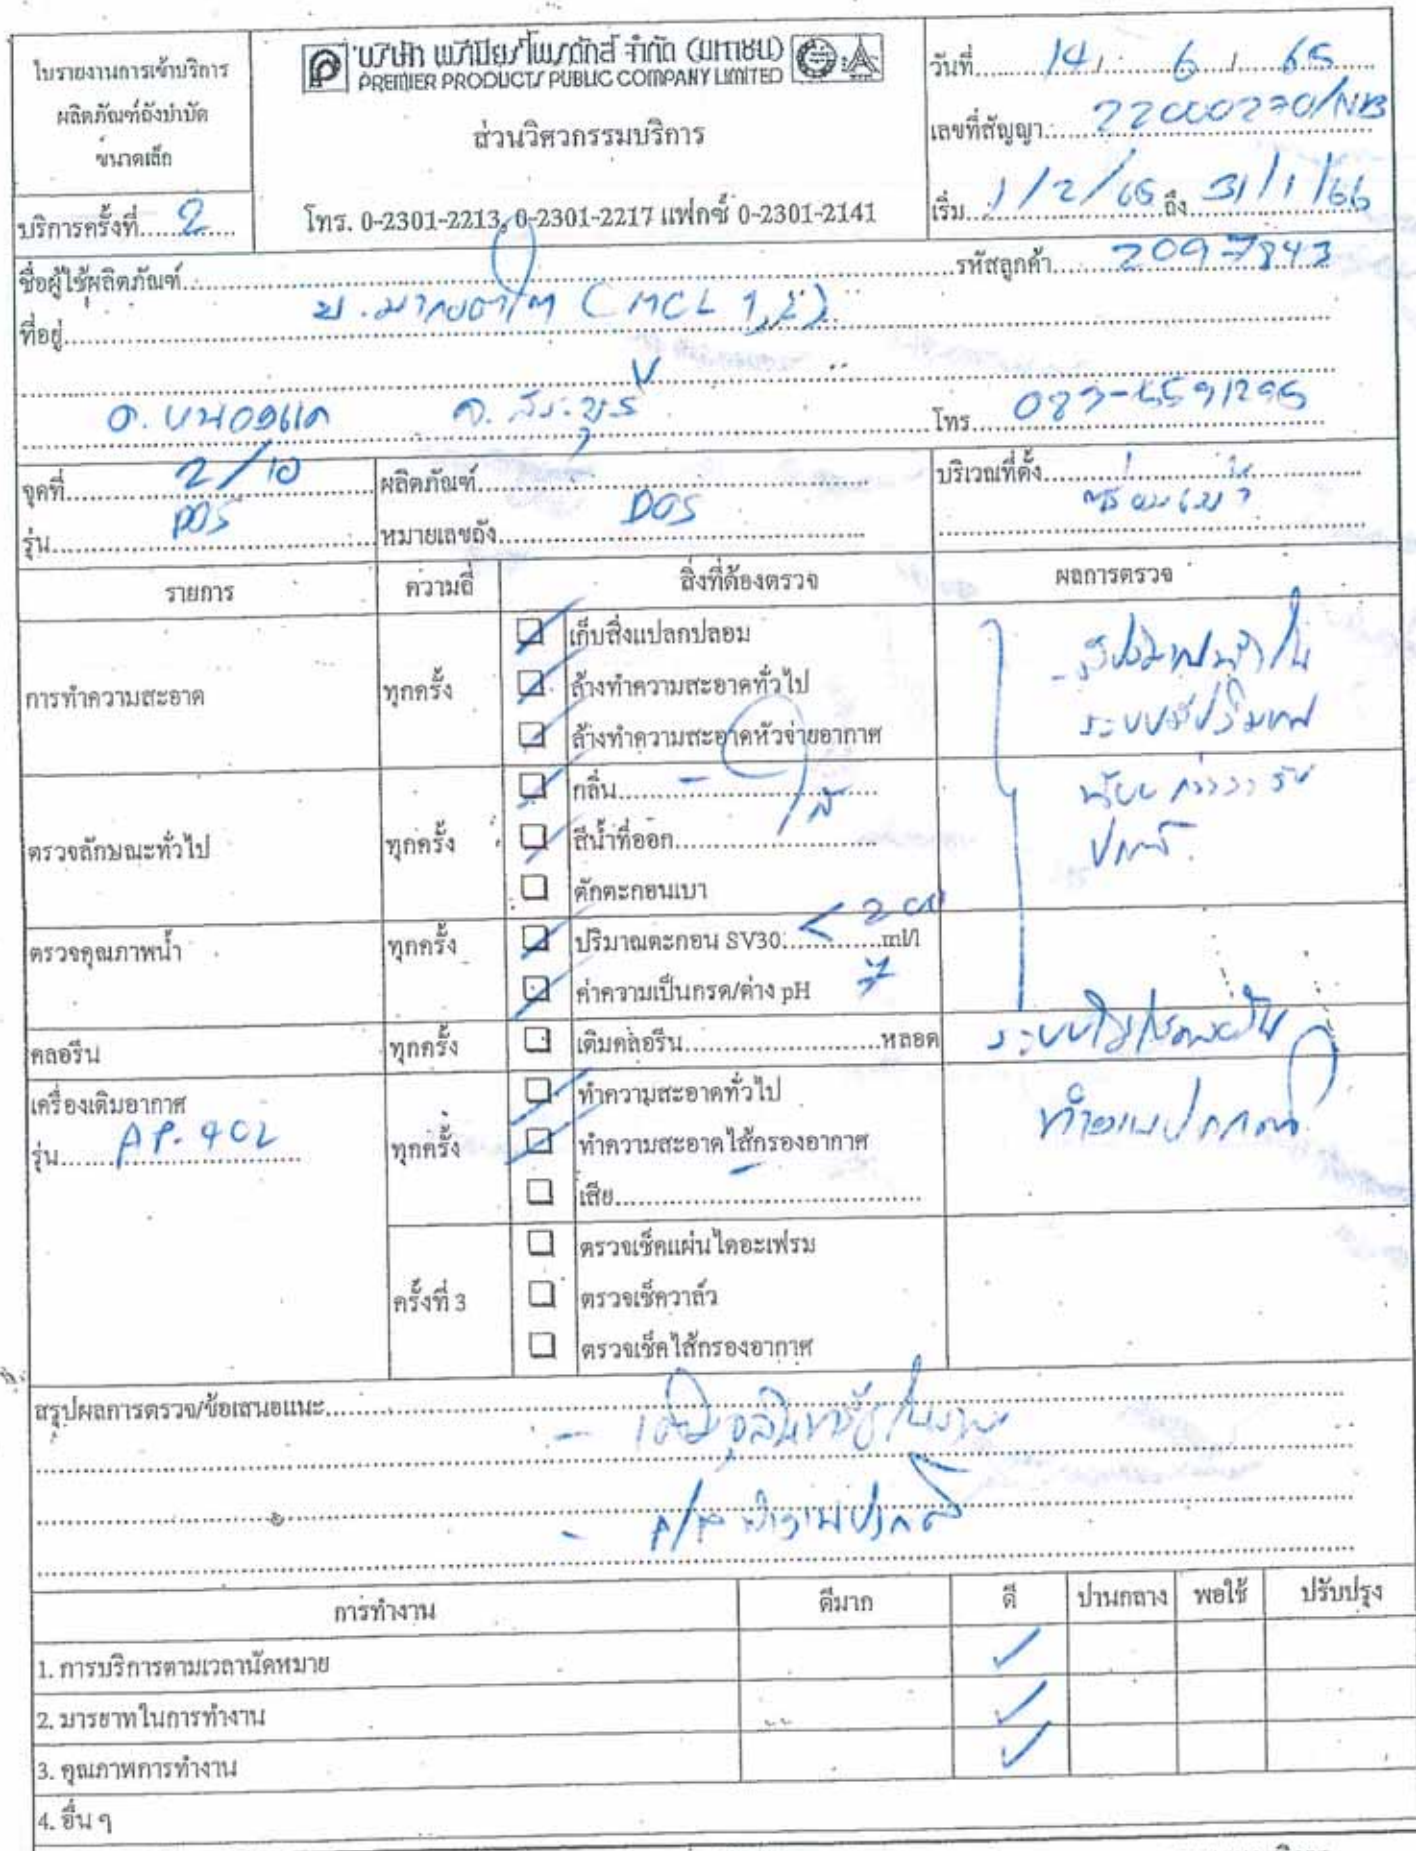 ใบรายงานการเข้าบริการ
ผลิตภัณฑ์ถังบำบัด
ขนาดเล็ก
บริการครั้งที่......2......
บริษัท พรีเมียร์ โพรดักส์ จำกัด (มหาชน)
PREMIER PRODUCTS PUBLIC COMPANY LIMITED
ส่วนวิศวกรรมบริการ
โทร. 0-2301-2213, 0-2301-2217 แฟกซ์ 0-2301-2141
วันที่ 14 / 6 / 65
เลขที่สัญญา 22000270/NB
เริ่ม 1/2/65 ถึง 31/1/66
ชื่อผู้ใช้ผลิตภัณฑ์ รหัสลูกค้า 2097843
ที่อยู่ (MCL 1,2)
อ. หนองแค จ. สระบุรี โทร 083-5591295
จุดที่ 2/10 ผลิตภัณฑ์ บริเวณที่ตั้ง
รุ่น DOS หมายเลขถัง DOS
รายการ ความถี่ สิ่งที่ต้องตรวจ ผลการตรวจ
การทำความสะอาด ทุกครั้ง
เก็บสิ่งแปลกปลอม
ล้างทำความสะอาดทั่วไป
ล้างทำความสะอาดหัวจ่ายอากาศ
ตรวจลักษณะทั่วไป ทุกครั้ง
กลิ่น -
สีน้ำที่ออก ใส
ตักตะกอนเบา
ปกติ
ตรวจคุณภาพน้ำ ทุกครั้ง
ปริมาณตะกอน SV30: < 200 ml/l
ค่าความเป็นกรด/ด่าง pH 7
คลอรีน ทุกครั้ง เติมคลอรีน หลอด
เครื่องเติมอากาศ
รุ่น AP. 40L ทุกครั้ง
ทำความสะอาดทั่วไป
ทำความสะอาดไส้กรองอากาศ
เสีย -
ทำงานปกติ
ครั้งที่ 3
ตรวจเช็คแผ่นไดอะเฟรม
ตรวจเช็ควาล์ว
ตรวจเช็คไส้กรองอากาศ
สรุปผลการตรวจ/ข้อเสนอแนะ
- เติมจุลินทรีย์
- A/P ทำงานปกติ
การทำงาน ดีมาก ดี ปานกลาง พอใช้ ปรับปรุง
1. การบริการตามเวลานัดหมาย ✓
2. มารยาทในการทำงาน ✓
3. คุณภาพการทำงาน ✓
4. อื่น ๆ